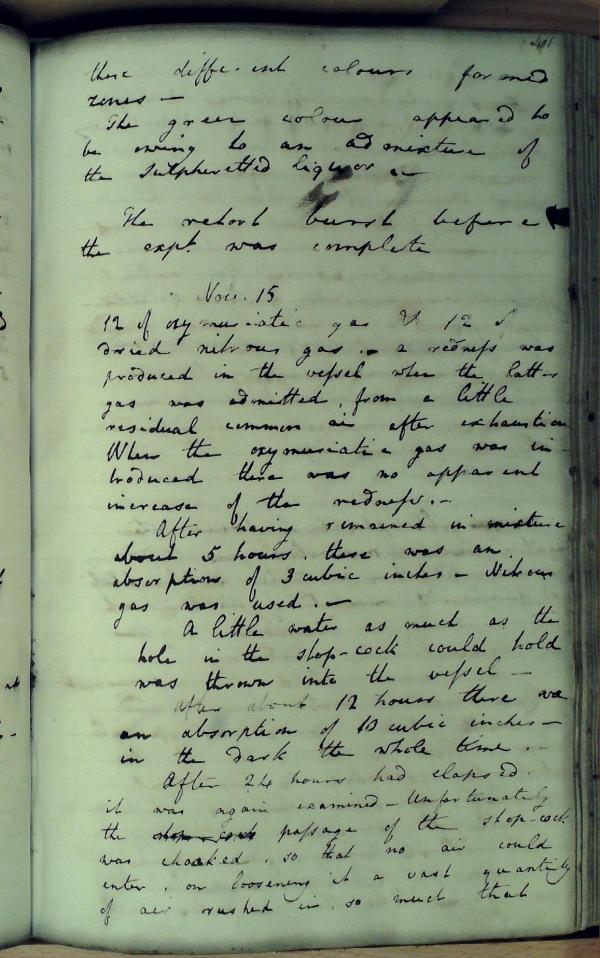 401
these different colours formed
zones —
The green colour appeared to
be owing to an admixture of
the sulphuretted liquor —
The retort burst before
the expt. was complete
Nov. 15
12 of oxymuriatic gas & 12 of
dried nitrous gas. — a redness was
produced in the vessel when the latter
gas was admitted, from a little
residual common air after exhaustion
When the oxymuriatic gas was in-
troduced there was no apparent
increase of the redness. —
After having remained in mixture
about 5 hours, there was an
absorption of 3 cubic inches — Nitrous
gas was used. —
A little water as much as the
hole in the stop-cock could hold
was thrown into the vessel —
After about 12 hours there was
an absorption of 13 cubic inches —
in the dark the whole time. —
After 24 hours had elapsed,
it was again examined — Unfortunately
the stop-cock passage of the stop-cock
was choaked, so that no air could
enter, on loosening it a vast quantity
of air rushed in, so much that